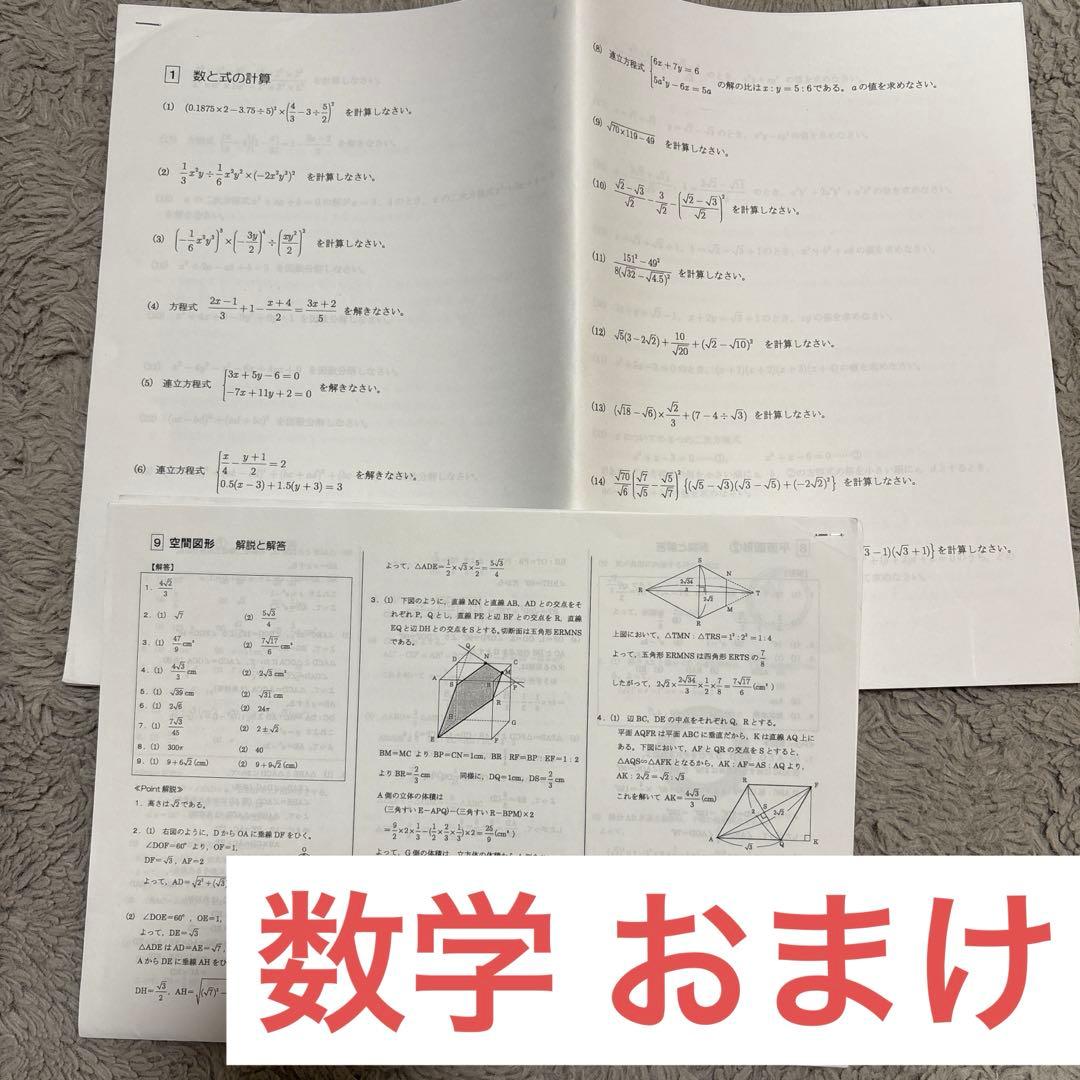 1 数と式の計算
(1) (0.1875×2−3.75÷5)²×(4/3−3÷5/2)² を計算しなさい。
(2) 1/3x²y÷1/6x³y²×(−2x²y³)² を計算しなさい。
(3) (−1/6x²y³)³×(−3y/2)⁴÷(xy²/2)² を計算しなさい。
(4) 方程式 2x−1/3+1−x+4/2=3x+2/5 を解きなさい。
(5) 連立方程式 {3x+5y−6=0
−7x+11y+2=0 を解きなさい。
(6) 連立方程式 {x/4−y+1/2=2
0.5(x−3)+1.5(y+3)=3 を解きなさい。
(8) 連立方程式 {6x+7y=6
5a²y−6x=5a の解の比はx:y=5:6である。aの値を求めなさい。
(9) √70×119−49 を計算しなさい。
(10) √2−√3/√2−3/√2−(√2−√3/√2)² を計算しなさい。
(11) 151²−49²/8(√32−√4.5)² を計算しなさい。
(12) √5(3−2√2)+10/√20+(√2−√10)² を計算しなさい。
(13) (√18−√6)×√2/3+(7−4÷√3) を計算しなさい。
(14) √70/√6(√7/√5−√5/√7)²{(√5−√3)(√3−√5)+(−2√2)²} を計算しなさい。
3−1)(√3+1)}を計算しなさい。
9 空間図形 解説と解答
【解答】
1. 4√2/3
2. (1) √7 (2) 5√3/4
3. (1) 47/9cm³ (2) 7√17/6cm²
4. (1) 4√3/3cm (2) 2√3cm²
5. (1) √39cm (2) √31cm
6. (1) 2√6 (2) 24π
7. (1) 7√3/45 (2) 2±√2
8. (1) 300π (2) 40
9. (1) 9+6√2(cm) (2) 9+9√2(cm)
≪Point解説≫
1. 高さは√2である。
2. (1) 右図のように、DからOAに垂線DFをひく。
∠DOF=60°より、OF=1,
DF=√3, AF=2
よって、AD=√2²+(√3
(2) ∠DOE=60°, OE=1,
よって、DE=√3
△ADEはAD=AE=√7,
AからDEに垂線AHをひ
DH=√3/2, AH=√(√7)²−
よって、△ADE=1/2×√3×5/2=5√3/4
3. (1) 下図のように、直線MNと直線AB、ADとの交点をそ
れぞれP、Qとし、直線PEと辺BFとの交点をR、直線
EQと辺DHとの交点をSとする。切断面は五角形ERMNS
である。
Q N C M A S B P R D G E F
BM=MCよりBP=CN=1cm, BR:RF=BP:EF=1:2
よりBR=2/3cm 同様に、DQ=1cm, DS=2/3cm
A側の立体の体積は
(三角すいE−APQ)−(三角すいR−BPM)×2
=9/2×2×1/3−(1/2×2/3×1/3)×2=25/9(cm³)
よって、G側の体積は、
S N R T M R 2√34/3 2√2
上図において、△TMN:△TRS=1²:2²=1:4
よって、五角形ERMNSは四角形ERTSの7/8
したがって、2√2×2√34/3×1/2×7/8=7√17/6(cm²)
4. (1) 辺BC、DEの中点をそれぞれQ、Rとする。
平面AQFRは平面ABCに垂直だから、Kは直線AQ上に
ある。下図において、AFとQRの交点をSとすると、
△AQS∽△AFKとなるから、AK:AF=AS:AQより、
AK:2√2=√2:√3
これを解いてAK=4√3/3(cm)
R F S 2 2√2 A √3 Q K
数学 おまけ